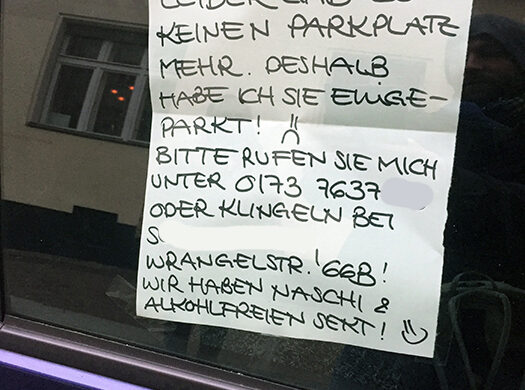 KEINEN PARKPLATZ
MEHR. DESHALB
HABE ICH SIE EINGE-
PARKT! :(
BITTE RUFEN SIE MICH
UNTER 0173 7637
ODER KLINGELN BEI
S
WRANGELSTR. 66B!
WIR HABEN NASCHI &
ALKOHLFREIEN SEKT! :)